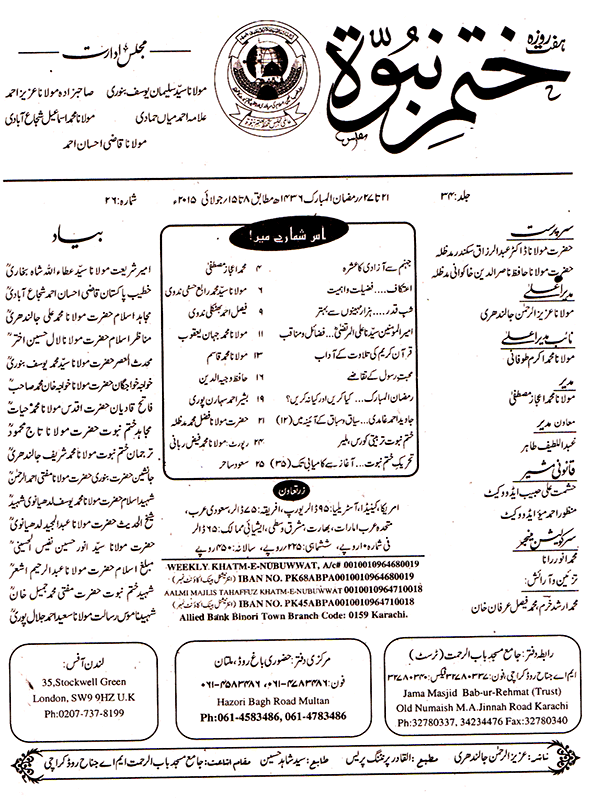 ہفت روزہ
ختم نبوّة
مجلس ادارت
مولانا سیّد سلیمان یوسف بنوری صاحبزادہ مولانا عزیز احمد
علامہ احمد میاں حمادی مولانا محمد اسماعیل شجاع آبادی
مولانا قاضی احسان احمد
جلد: ۳۴
۲۱ تا ۲۷؍ رمضان المبارک ۱۴۳۶ھ مطابق ۸ تا ۱۵؍ جولائی ۲۰۱۵ء
شماره: ۲۶
سرپرست
حضرت مولانا ڈاکٹر عبدالرزاق سکندر مدظلہ
حضرت مولانا حافظ ناصر الدین خاکوانی مدظلہ
مدیر اعلیٰ
مولانا عزیز الرحمٰن جالندھری
نائب مدیر اعلیٰ
مولانا محمد اکرم طوفانی
مدیر
مولانا محمد اعجاز مصطفیٰ
معاون مدیر
عبداللطیف طاہر
قانونی مشیر
حشمت علی حبیب ایڈووکیٹ
منظور احمد میو ایڈووکیٹ
سرکولیشن منیجر
محمد انور رانا
تزئین و آرائش:
محمد ارشد خرم، محمد فیصل عرفان خان
اس شمارے میں!
جہنم سے آزادی کا عشرہ ۴ محمد اعجاز مصطفیٰ
اعتکاف... فضیلت و اہمیت ۶ مولانا سیّد محمد رابع حسنی ندوی
شب قدر... ہزار مہینوں سے بہتر ۹ فیصل احمد بھٹکلی ندوی
امیر المؤمنین سیّدنا علی المرتضیٰؓ... فضائل و مناقب ۱۱ مولانا محمد جہان یعقوب
قرآن کریم کی تلاوت کے آداب ۱۳ مولانا محمد قاسم
محبت رسول کے تقاضے ۱۶ حافظ وجیہ الدین
رمضان المبارک... کیا کریں اور کیا نہ کریں؟ ۱۹ بشیر احمد سہارن پوری
جاوید احمد غامدی... سیاق و سباق کے آئینہ میں (۱۲) ۲۱ حضرت مولانا فضل محمد مدظلہ
ختم نبوت تربیتی کورس، ملیر ۲۴ رپورٹ: مولانا محمد فیض ربانی
تحریک ختم نبوت... آغاز سے کامیابی تک (۳۵) ۲۵ سعود ساحر
زر تعاون
امریکا، کینیڈا، آسٹریلیا: ۹۵ ڈالر یورپ، افریقہ: ۷۵ ڈالر، سعودی عرب،
متحدہ عرب امارات، بھارت، مشرق وسطیٰ، ایشیائی ممالک: ۶۵ ڈالر
فی شمارہ ۱۰ روپے، ششماہی: ۲۲۵ روپے، سالانہ: ۴۵۰ روپے
WEEKLY KHATM-E-NUBUWWAT, A/c# 0010010964680019
IBAN NO. PK68ABPA0010010964680019 (انٹرنیشنل بینک اکاؤنٹ نمبر)
AALMI MAJLIS TAHAFFUZ KHATM-E-NUBUWWAT 0010010964710018
IBAN NO. PK45ABPA0010010964710018 (انٹرنیشنل بینک اکاؤنٹ نمبر)
Allied Bank Binori Town Branch Code: 0159 Karachi.
بیاد
امیر شریعت مولانا سیّد عطاء اللہ شاہ بخاریؒ
خطیب پاکستان قاضی احسان احمد شجاع آبادیؒ
مجاہد اسلام حضرت مولانا محمد علی جالندھریؒ
مناظر اسلام حضرت مولانا لال حسین اخترؒ
محدث العصر حضرت مولانا سیّد محمد یوسف بنوریؒ
خواجہ خواجگان حضرت مولانا خواجہ خان محمد صاحبؒ
فاتح قادیان حضرت اقدس مولانا محمد حیاتؒ
مجاہد ختم نبوت حضرت مولانا تاج محمودؒ
ترجمان ختم نبوت حضرت مولانا محمد شریف جالندھریؒ
جانشین حضرت بنوری حضرت مولانا مفتی احمد الرحمٰنؒ
شہید اسلام حضرت مولانا محمد یوسف لدھیانوی شہیدؒ
شیخ الحدیث حضرت مولانا عبدالمجید لدھیانویؒ
حضرت مولانا سیّد انور حسین نفیس الحسینیؒ
مبلغ اسلام حضرت مولانا عبدالرحیم اشعرؒ
شہید ختم نبوت حضرت مفتی محمد جمیل خانؒ
شہید ناموس رسالت مولانا سعید احمد جلال پوریؒ
رابطہ دفتر: جامع مسجد باب الرحمت (ٹرسٹ)
ایم اے جناح روڈ کراچی، فون: ۳۲۷۸۰۳۳۷ فیکس: ۳۲۷۸۰۳۴۰
Jama Masjid Bab-ur-Rehmat (Trust)
Old Numaish M.A.Jinnah Road Karachi
Ph:32780337, 34234476 Fax:32780340
مرکزی دفتر: حضوری باغ روڈ، ملتان
فون: ۰۶۱-۴۷۸۳۴۸۶، ۰۶۱-۴۵۸۳۴۸۶
Hazori Bagh Road Multan
Ph:061-4583486, 061-4783486
لندن آفس:
35,Stockwell Green
London, SW9 9HZ U.K
Ph:0207-737-8199
ناشر: عزیز الرحمٰن جالندھری مطبع: القادر پرنٹنگ پریس طابع: سیّد شاہد حسین مقام اشاعت: جامع مسجد باب الرحمت ایم اے جناح روڈ کراچی